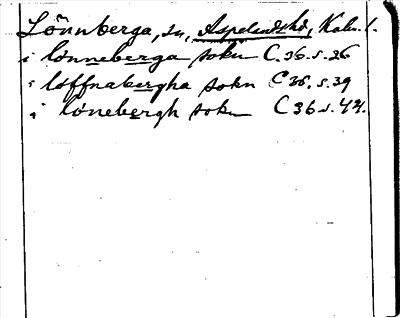 Lönnberga, sn, Aspelandshd, Kalm. l.
i lönneberga sokn C. 36. s. 26
i löffnabergha sokn C 36. s. 39
i lönebergh sokn C 36 s. 42.